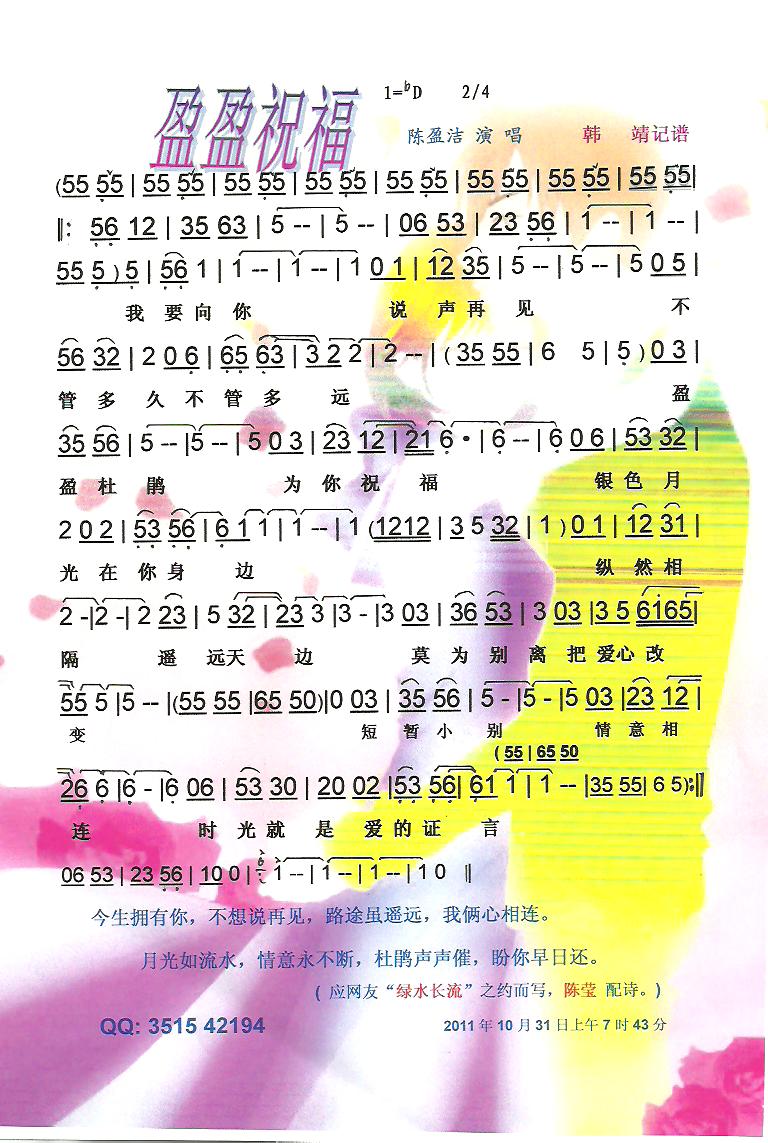 盈盈祝福 1=♭D 2/4
陈盈洁 演 唱 韩 靖记谱
(55 55 | 55 55 | 55 55 | 55 55 | 55 55 | 55 55 | 55 55 | 55 55|
‖: 56 12 | 35 63 | 5 -- | 5 -- | 06 53 | 23 56 | 1 -- | 1 -- |
55 5 ) 5 | 56 1 | 1 -- | 1 -- | 1 0 1 | 12 35 | 5 -- | 5 -- | 5 0 5 |
我 要 向 你 说 声 再 见 不
56 32 | 2 0 6 | 65 63 | 3 2 2 | 2 -- | ( 35 55 | 6 5 | 5 ) 0 3 |
管 多 久 不 管 多 远 盈
35 56 | 5 -- |5 -- | 5 0 3 | 23 12 | 21 6 • | 6 -- | 6 0 6 | 53 32 |
盈 杜 鹃 为 你 祝 福 银 色 月
2 0 2 | 53 56 | 6 1 1 | 1 -- | 1 (1212 | 3 5 32 | 1 ) 0 1 | 12 31 |
光 在 你 身 边 纵 然 相
2 -|2 -| 2 23 | 5 32 | 23 3 |3 - |3 03 | 36 53 | 3 03 |3 5 6165|
隔 遥 远天 边 莫 为 别 离 把 爱心 改
55 5 |5 -- |(55 55 |65 50)|0 03 | 35 56 | 5 - |5 - |5 03 |23 12 |
变 短 暂 小 别 情 意 相
( 55 | 65 50
26 6 |6 - |6 06 | 53 30 | 20 02 |53 56| 61 1 | 1 -- |35 55| 6 5):‖
连 时 光 就 是 爱 的 证 言
06 53 | 23 56 | 10 0 | 1 -- | 1 -- | 1 -- | 1 0 ‖
今生拥有你，不想说再见，路途虽遥远，我俩心相连。
月光如流水，情意永不断，杜鹃声声催，盼你早日还。
( 应网友“绿水长流”之约而写，陈莹 配诗。)
QQ: 3515 42194 2011 年 10 月 31 日上午 7 时 43 分